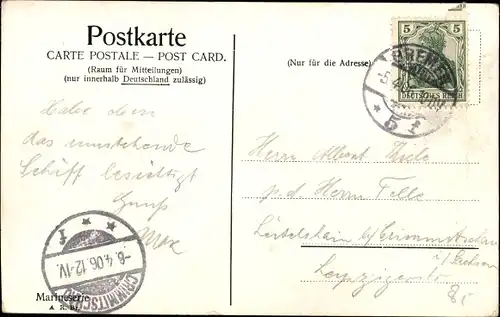 Postkarte
CARTE POSTALE — POST CARD.
(Raum für Mitteilungen)
(nur innerhalb Deutschland zulässig)
(Nur für die Adresse)
5 5
DEUTSCHES REICH
BREMEN
* 5 f
Habe eben
das umstehende
Schiff besichtigt
Gruß
Max
Herrn Albert Thiele
p. d. Herrn Felle
b/ Crimmitschau
i/ Sachsen
Leipzigerstr
f * *
-6.4.06.12-1V.
CRIMMITSCHAU
Marineserie